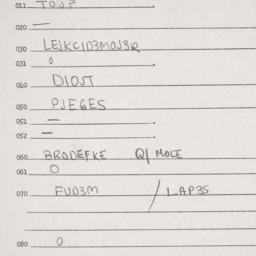 011 TOJP
020 —
030 LEJKCIO3MOJ3R
031 0
040 DIOJT
050 PJEGES
051 —
052 —
060 BRODEFKE Q/ MOLE
061 O
070 FUD3M / LAP3S
080 0